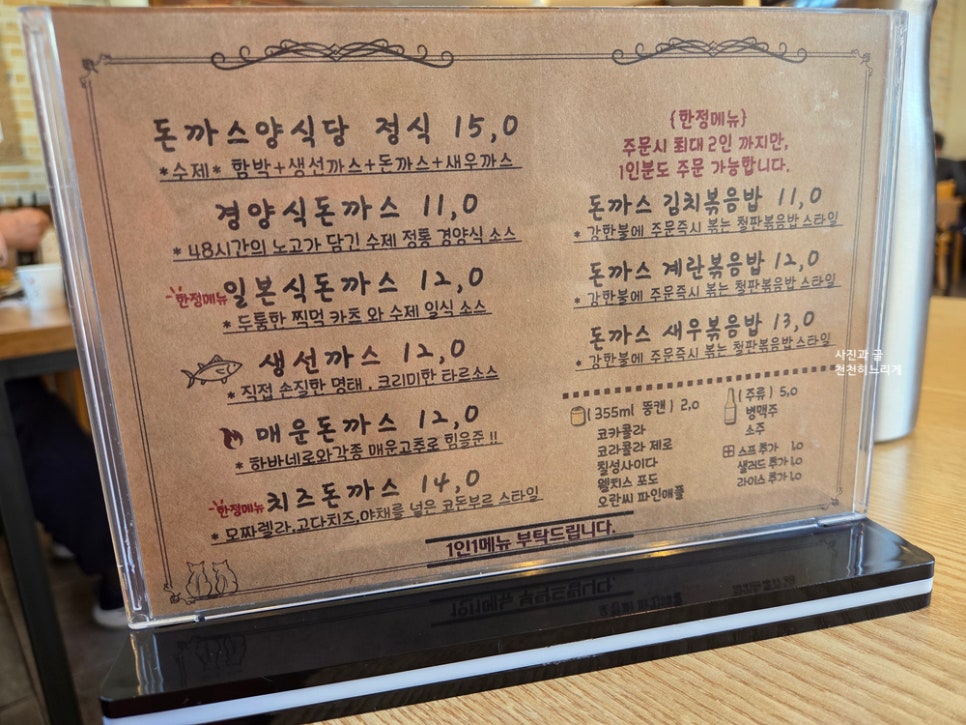 돈까스양식당 정식 15,0
*수제* 함박+생선까스+돈까스+새우까스
경양식돈까스 11,0
* 48시간의 노고가 담긴 수제 정통 경양식 소스
한정메뉴 일본식돈까스 12,0
* 두툼한 찍먹 카츠 와 수제 일식 소스
생선까스 12,0
* 직접 손질한 명태, 크리미한 타르소스
매운돈까스 12,0
* 하바네로와각종 매운고추로 힘을준!!
한정메뉴 치즈돈까스 14,0
* 모짜렐라,고다치즈,야채를 넣은 코돈부르 스타일
{한정메뉴}
주문시 최대 2인 까지만,
1인분도 주문 가능합니다.
돈까스 김치볶음밥 11,0
* 강한불에 주문즉시 볶는 철판볶음밥스타일
돈까스 계란볶음밥 12,0
* 강한불에 주문즉시 볶는 철판볶음밥스타일
돈까스 새우볶음밥 13,0
* 강한불에 주문즉시 볶는 철판볶음밥스타일
(355ml 뚱캔) 2,0
코카콜라
코라콜라 제로
칠성사이다
웰치스 포도
오란씨 파인애플
(주류) 5,0
병맥주
소주
스프추가 1.0
샐러드추가 1.0
라이스추가 1.0
1인1메뉴 부탁드립니다.
사진과 글
천천히느리게